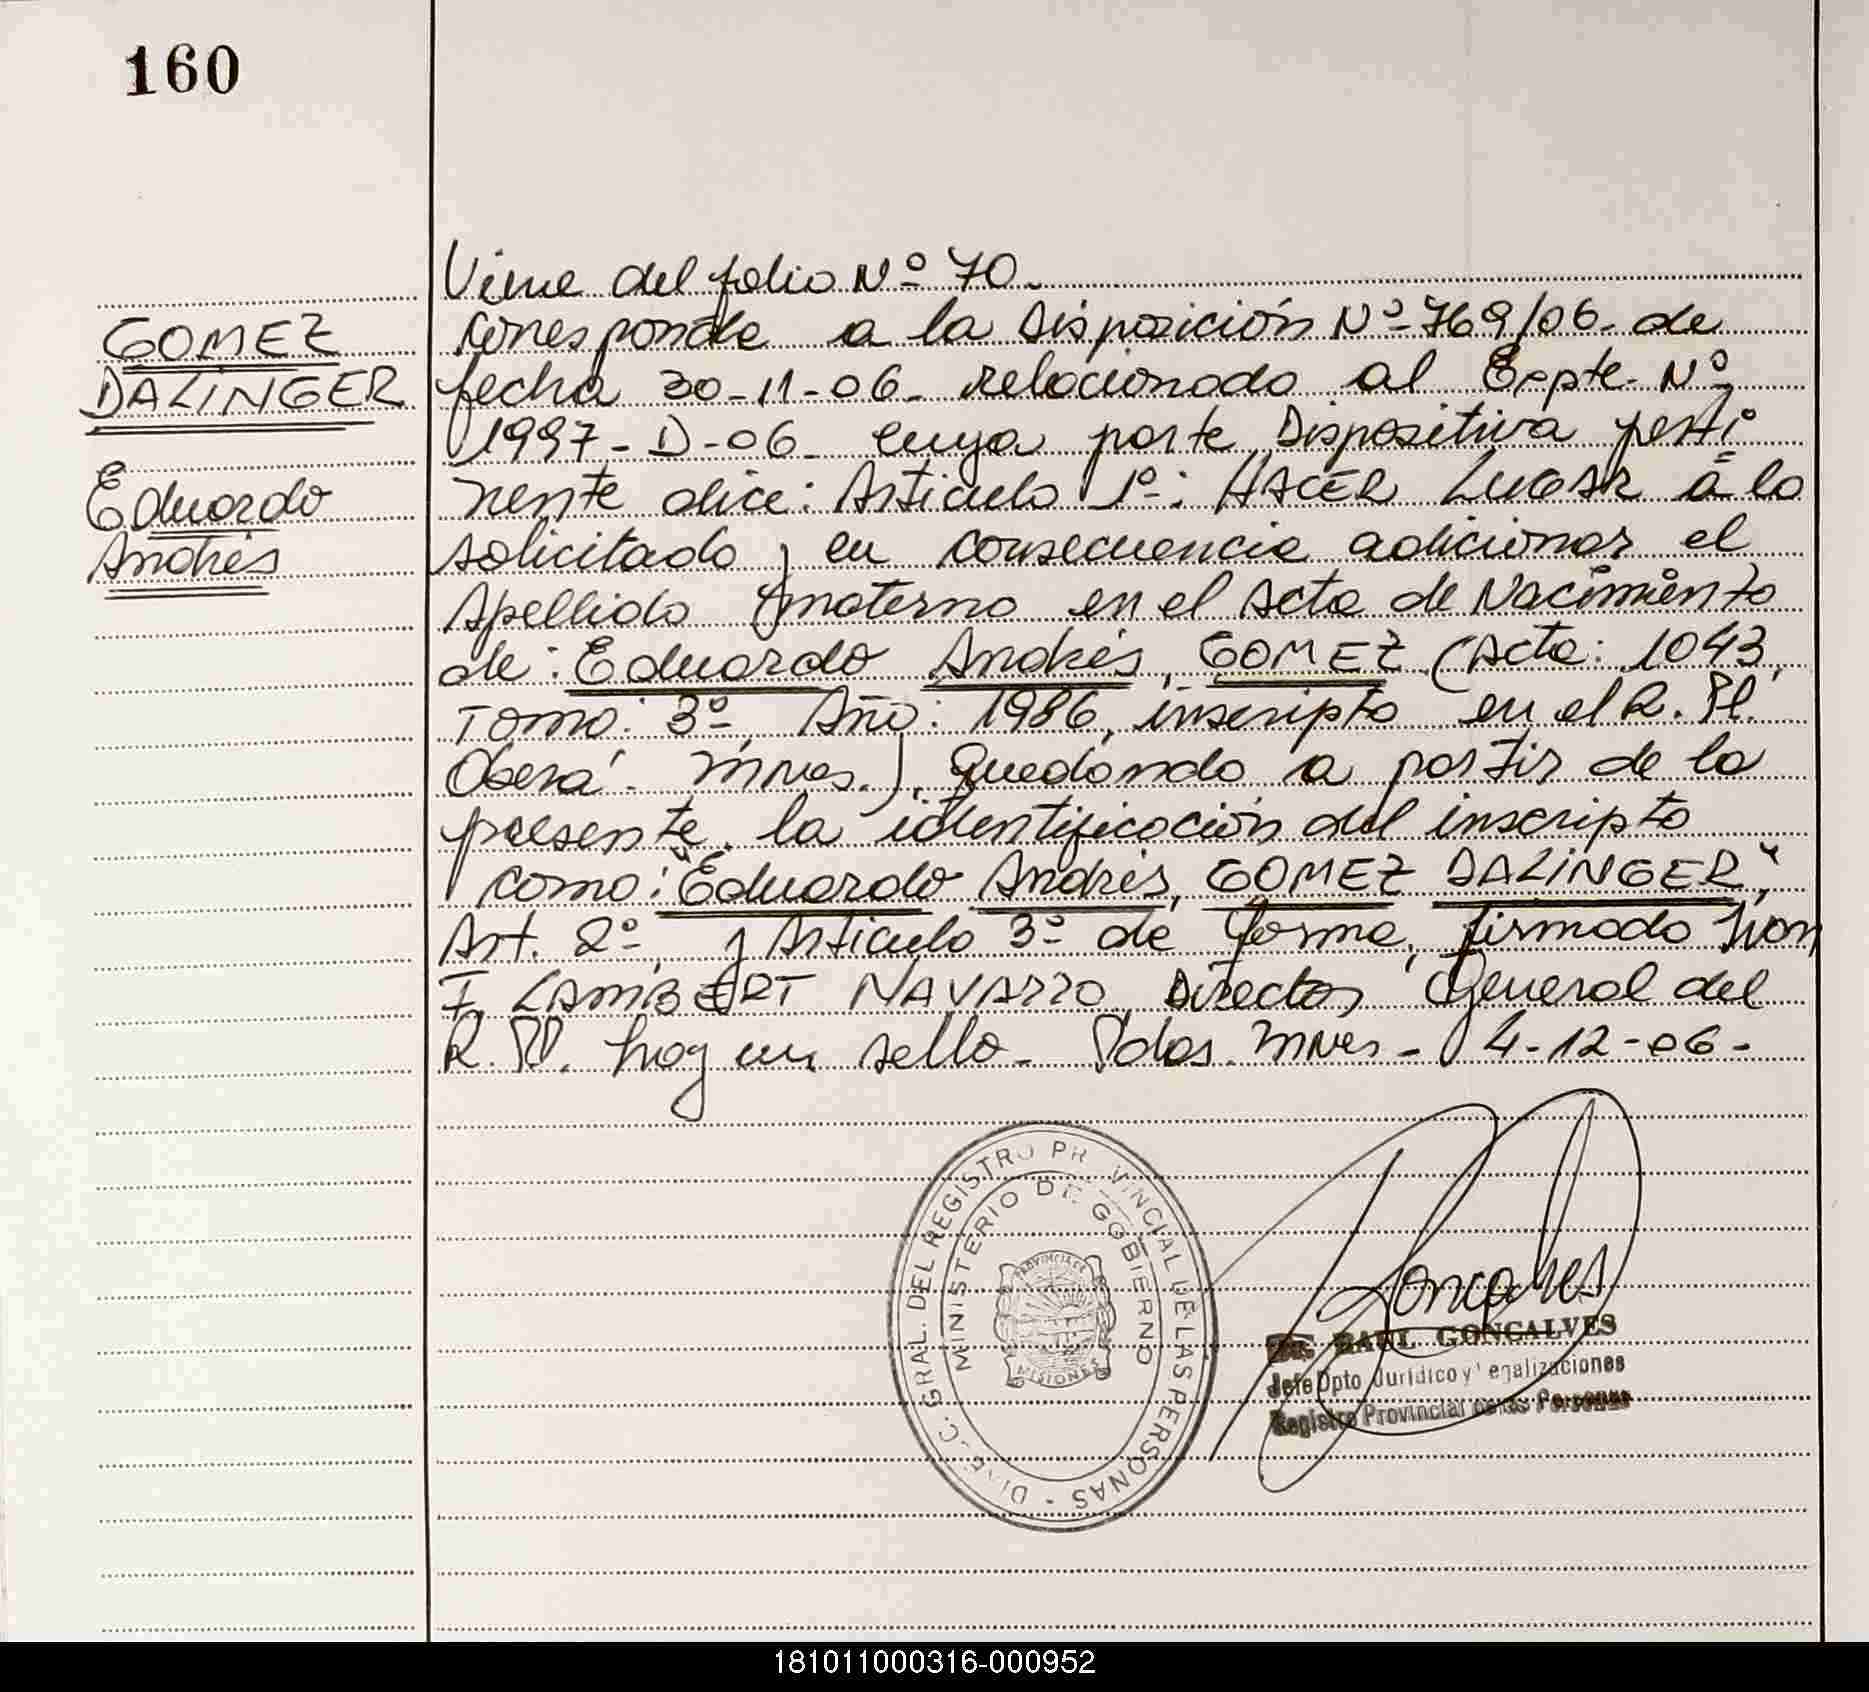 160
GOMEZ
DALINGER
Eduardo
Andrés
Viene del folio Nº 70.-
Corresponde a la Disposición Nº 769/06- de
fecha 30-11-06- relacionado al Expte- Nº
1997-D-06- cuya parte Dispositiva perti
nente dice: Articulo 1º-: HACER LUGAR a lo
solicitado y en consecuencia adicionar el
Apellido materno en el Acta de Nacimiento
de: Eduardo Andrés, GOMEZ (Acta: 1043,
Tomo: 3º-, Año: 1986, inscripto en el R. Pl.
Oberá - Mnes.), quedando a partir de la
presente, la identificación del inscripto
como: "Eduardo Andrés, GOMEZ DALINGER",
Art. 2º-, y Articulo 3º- de forma, firmado Ivon
F. LAMBERT NAVARRO, Director General del
R. PP. hay un sello- Pdas. Mnes - 4-12-06-
DIREC. GRAL. DEL REGISTRO PROVINCIAL DE LAS PERSONAS -
MINISTERIO DE GOBIERNO
PROVINCIA DE
MISIONES
Goncalves
Dr. RAUL GONCALVES
Jefe Dpto Jurídico y Legalizaciones
Registro Provincial de las Personas
181011000316-000952